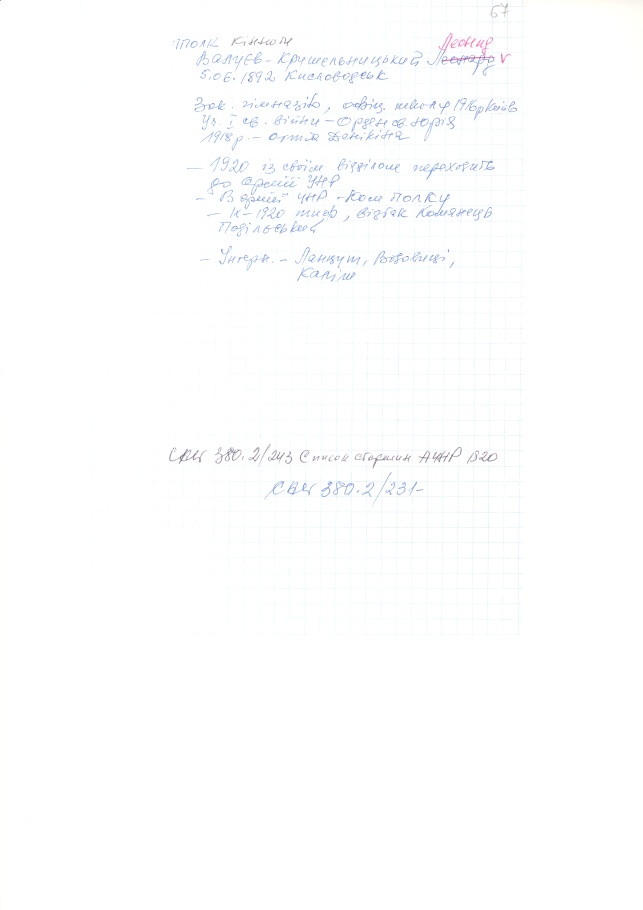 67
ППОЛК Кінноти
Леонид
Валуєв-Крушельницький Леонард V
5.06.1892 Кисловодськ
Зак. гімназію, офіц. школу 1916р Київ
Уч. I св. війни – Орден св. Юрія
1918р. – Денікіна
— 1920 із своїм відділом переходить
до Армії УНР
– В армії УНР – Ком полку
– IX-1920 тиф, Камянець
Подільський
– Інтерн. – Ланцут, Вадовиці,
Каліш
380.2/243 Список старшин АУНР 1920
380.2/231-